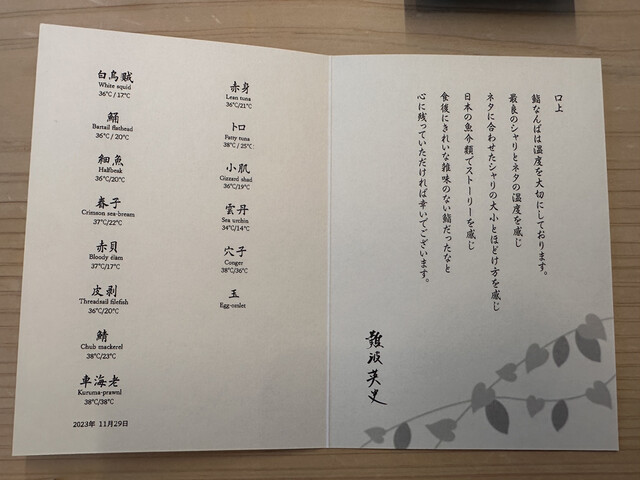 白烏賊
White squid
36℃ / 17℃
鯒
Bartail flathead
36℃ / 20℃
細魚
Halfbeak
36℃/20℃
春子
Crimson sea-bream
37℃/22℃
赤貝
Bloody clam
37℃/17℃
皮剥
Threadsail filefish
36℃/20℃
鯖
Chub mackerel
38℃/23℃
車海老
Kuruma-prawnl
38℃/38℃
2023年 11月29日
赤身
Lean tuna
36℃/21℃
トロ
Fatty tuna
38℃ / 25℃
小肌
Gizzard shad
36℃/19℃
雲丹
Sea urchin
34℃/14℃
穴子
Conger
38℃/36℃
玉
Egg-omlet
口上
鮨なんばは温度を大切にしております。
最良のシャリとネタの温度を感じ
ネタに合わせたシャリの大小とほどけ方を感じ
日本の魚介類でストーリーを感じ
食後にきれいな雑味のない鮨だったなと
心に残っていただければ幸いでございます。
難波英史